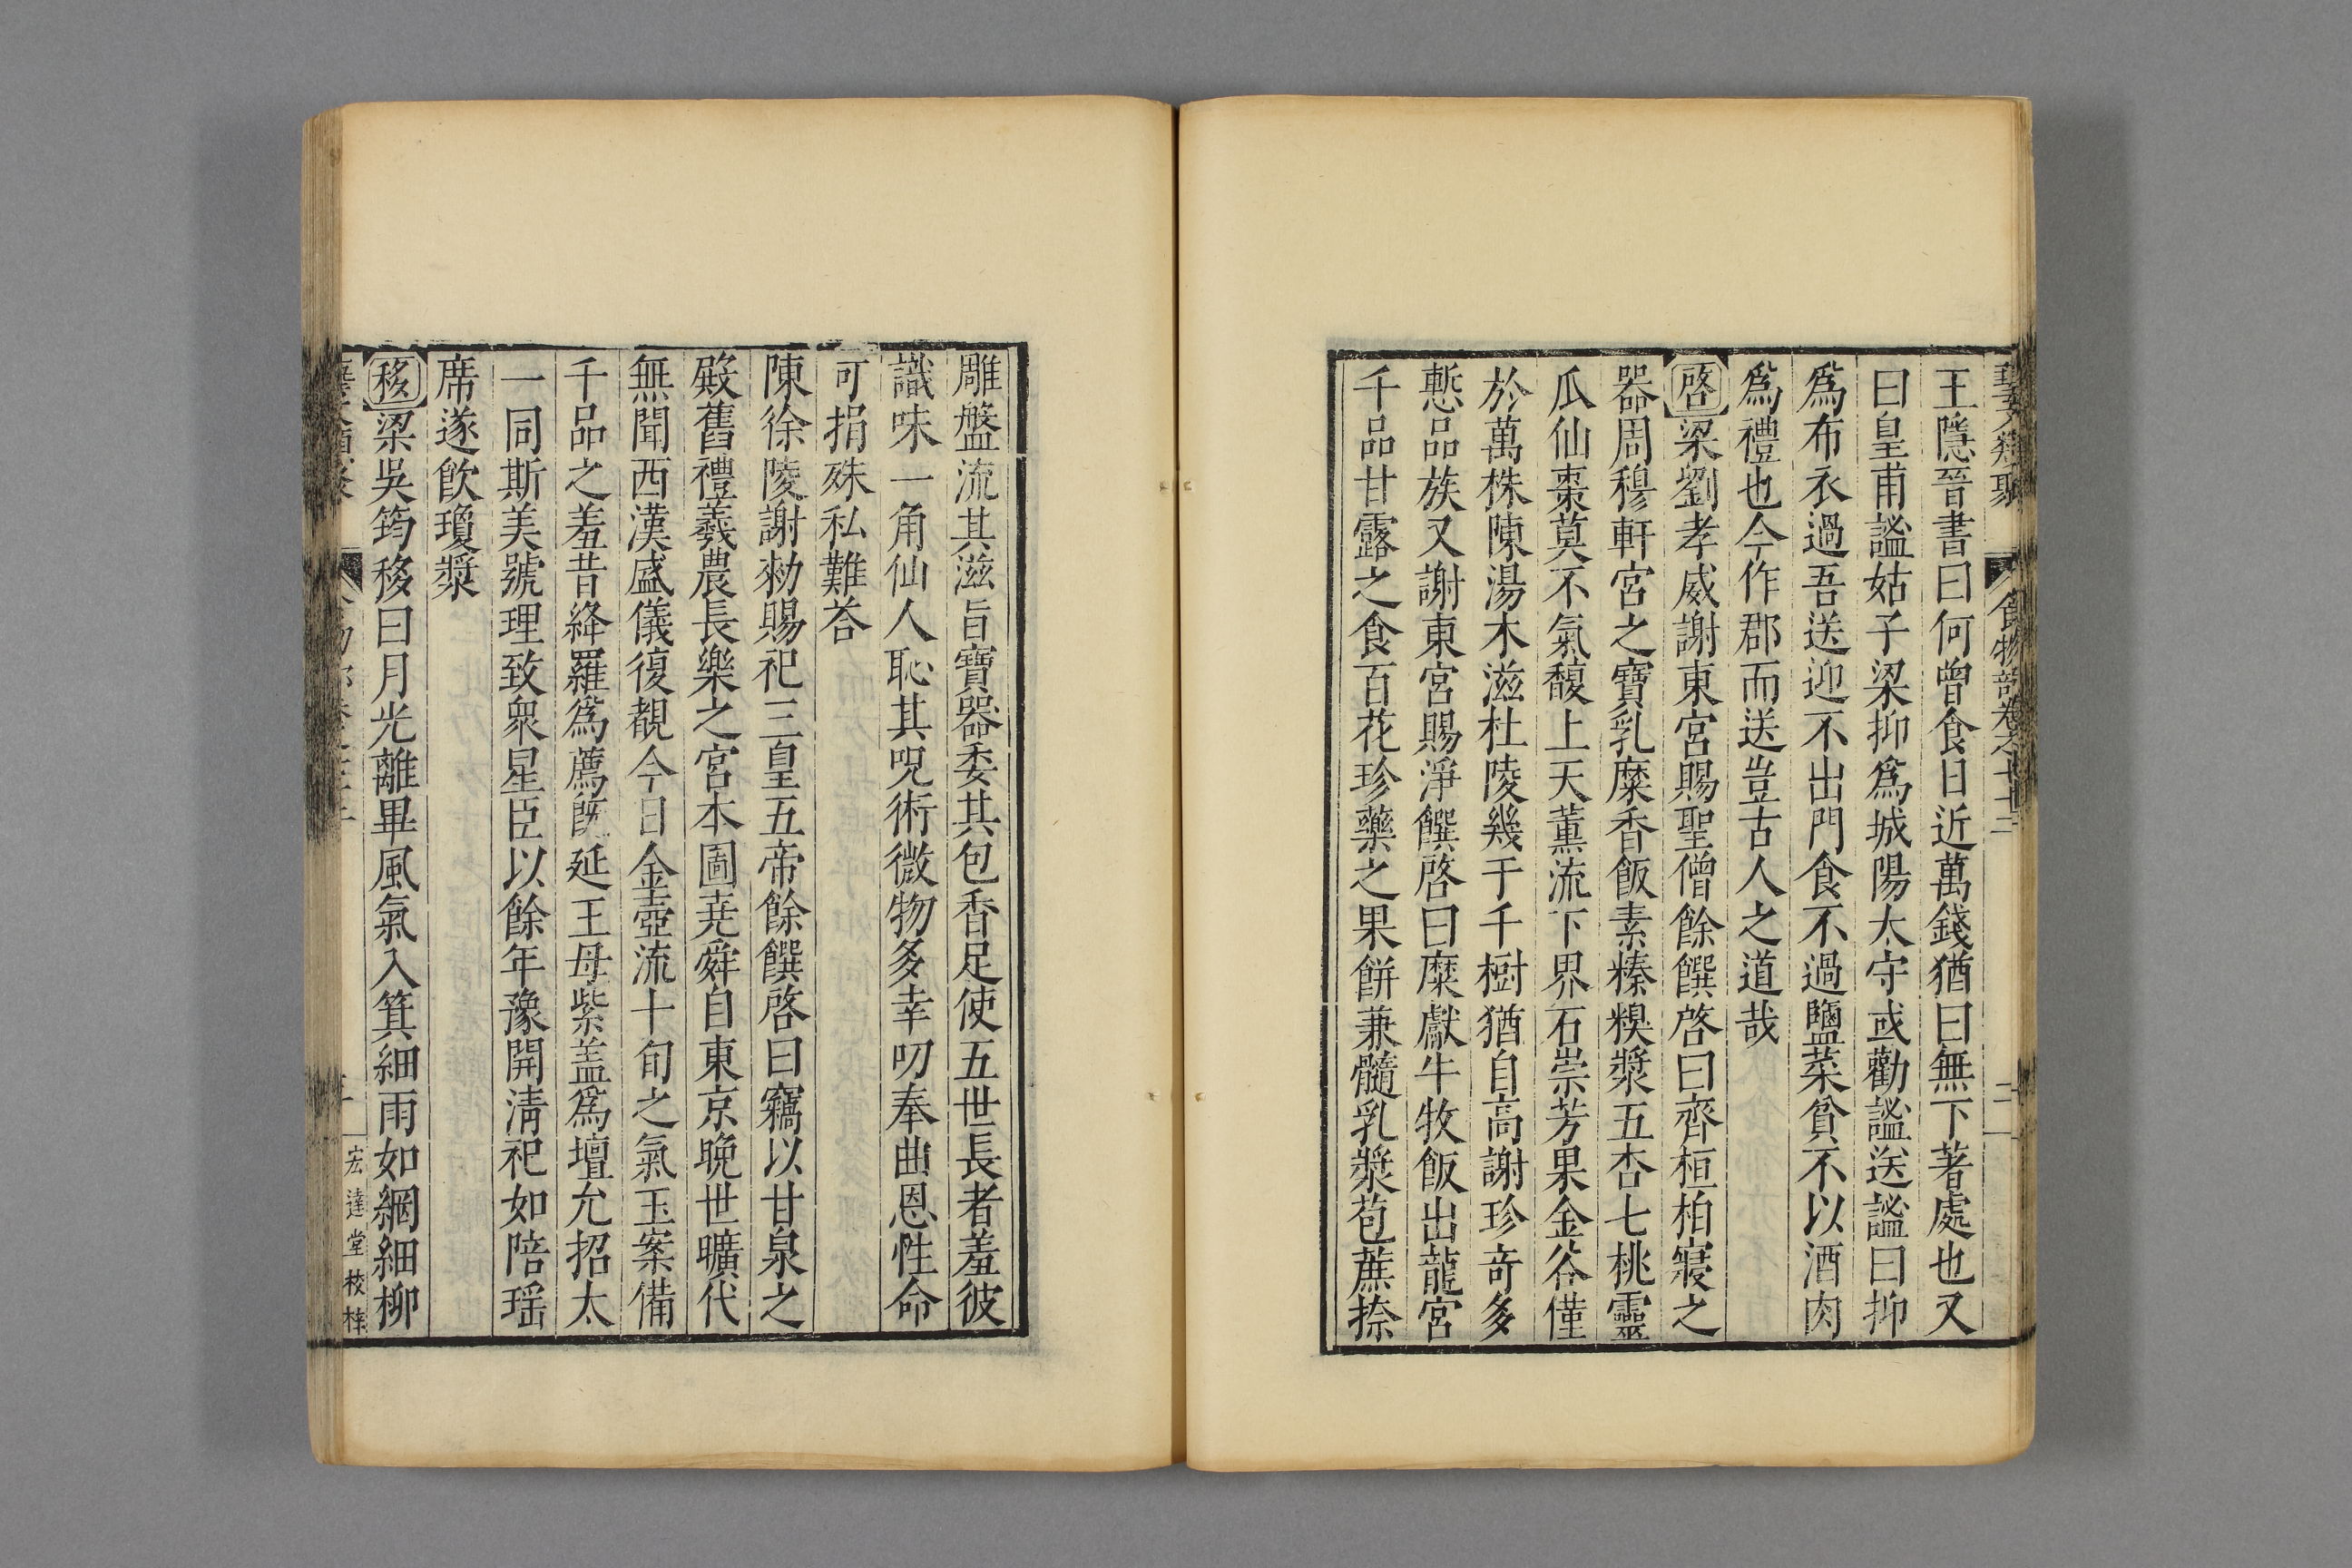 藝文類聚 食物部卷之七十二 二
王隱晉書曰何曾食日近萬錢猶曰無下著處也又
曰皇甫謐姑子梁柳爲城陽太守或勸謐送謐曰抑
爲布衣過吾送迎不出門食不過鹽菜貧不以酒肉
爲禮也今作郡而送豈古人之道哉
啓梁劉孝威謝東宮賜聖僧餘饌啓曰齊桓柏寢之
器周穆軒宮之寶乳糜香飯素榛糗漿五杏七桃靈
瓜仙棗莫不氣馥上天薰流下界石崇芳果金谷僅
於萬株陳湯木滋杜陵幾于千樹猶自高謝珍奇多
慙品族又謝東宮賜淨饌啓曰糜獻牛牧飯出龍宮
千品甘露之食百花珍藥之果餅兼髓乳漿苞蔗捺
雕盤流其滋旨寶器委其包香足使五世長者羞彼
識味一角仙人恥其呪術微物多幸叨奉曲恩性命
可捐殊私難荅
陳徐陵謝勑賜祀三皇五帝餘饌啓曰竊以甘泉之
殿舊禮羲農長樂之宮本圖尭舜自東京晚世曠代
無聞西漢盛儀復覩今日金壺流十旬之氣玉案備
千品之羞昔絳羅爲薦旣延王母紫盖爲壇允招太
一同斯美號理致衆星臣以餘年豫開清祀如陪瑶
席遂飲瓊漿
移梁吳筠移曰月光離畢風氣入箕細雨如網細柳
宏達堂校梓